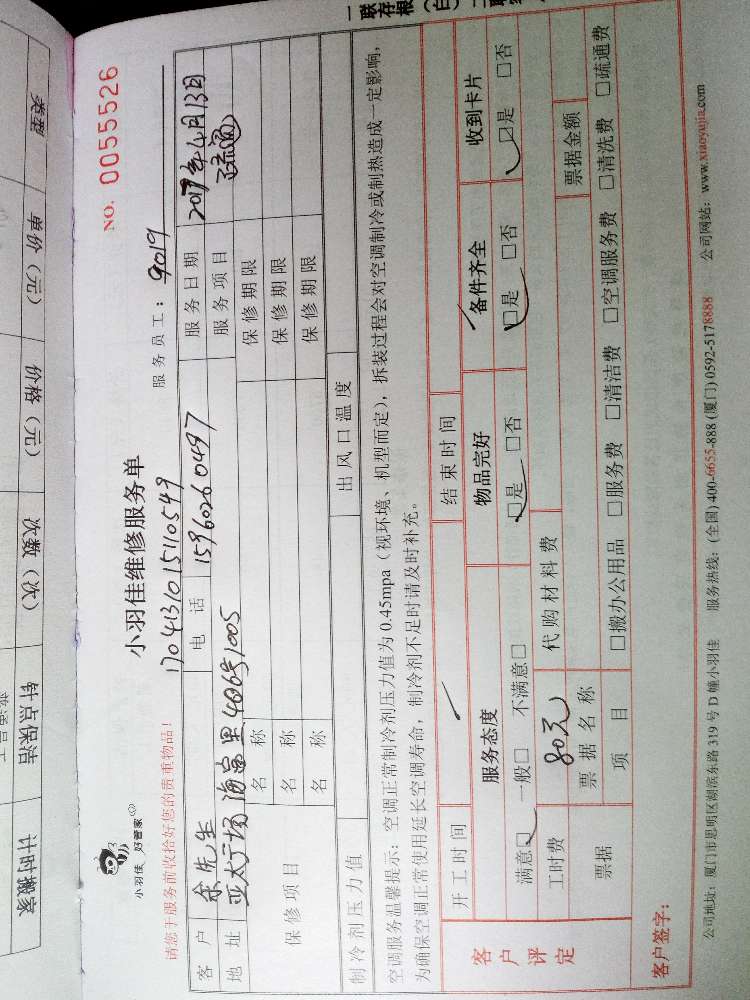 小羽佳 好管家
小羽佳维修服务单
NO. 0055526
请您于服务前收拾好您的贵重物品!
1704131015110549
服务员工: 9019
客户 余先生 电话 15960260497 服务日期 2017年4月13日
地址 亚太广场海富里406号1005 服务项目 疏通
保修项目 名称 保修期限
名称 保修期限
名称 保修期限
制冷剂压力值 出风口温度
空调服务温馨提示: 空调正常制冷剂压力值为0.45mpa(视环境、机型而定), 拆装过程会对空调制冷或制热造成一定影响,
为确保空调正常使用延长空调寿命, 制冷剂不足时请及时补充。
客户评定 开工时间 结束时间
服务态度 物品完好 备件齐全 收到卡片
满意□ 一般□ 不满意□ □是 □否 □是 □否 □是 □否
工时费 80元 代购材料费
票据 票据名称 票据金额
项目 □搬办公用品 □服务费 □清洁费 □空调服务费 □清洗费 □疏通费
客户签字:
公司地址: 厦门市思明区湖滨东路319号D幢小羽佳 服务热线: (全国) 400-6655-888 (厦门) 0592-5178888 公司网站: www.xiaoyujia.com
类型 单价(元) 价格(元) 次数(次)
钟点保洁
计时搬家
一联存根(白)